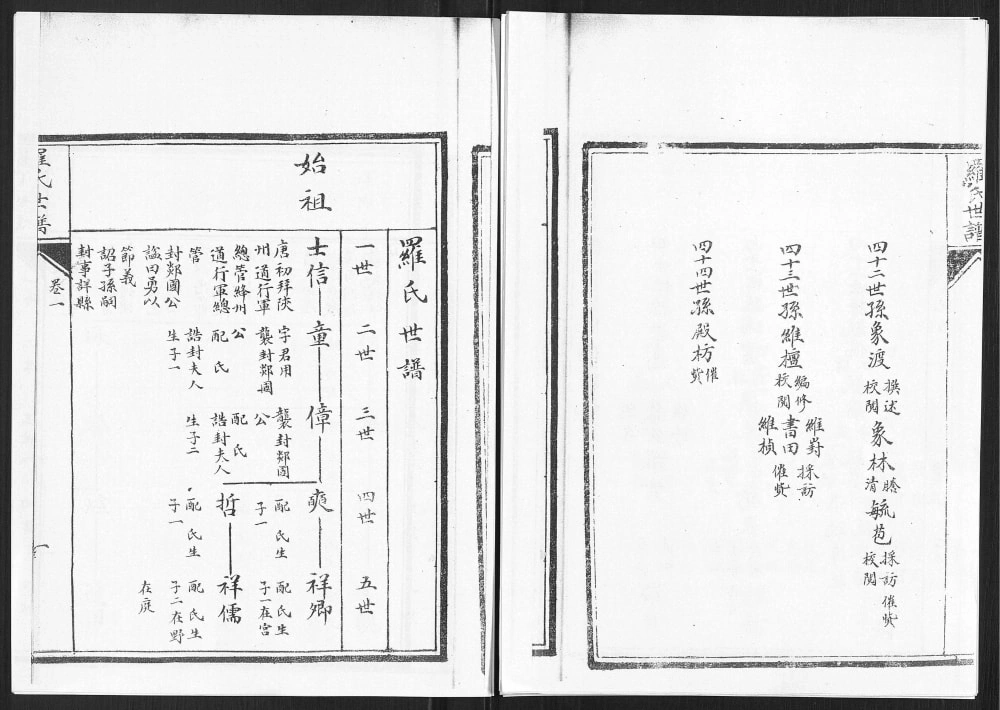 羅氏世譜
四十二世孫象渡 撰述 校閱 象林 謄清 毓苞 採訪 校閱 催貲
四十三世孫維檀 編修 校閱 書田 維對 採訪 維楨 催貲
四十四世孫殿枋 催貲
羅氏世譜
一世
二世
三世
四世
五世
始祖
士信
唐初拜陝
州道行軍
總管絳州
道行軍總
管
封郯國公
諡曰勇以
節義
詔子孫嗣
封事詳縣
童
字君用
襲封郯國
公
配 氏
誥封夫人
生子一
偉
襲封郯國
公
配 氏
誥封夫人
生子二
爽
配 氏生
子一
哲
配 氏生
子一
祥卿
配 氏生
子一在宮
祥儒
配 氏生
子二在野
在庭
羅氏世譜
卷一
一